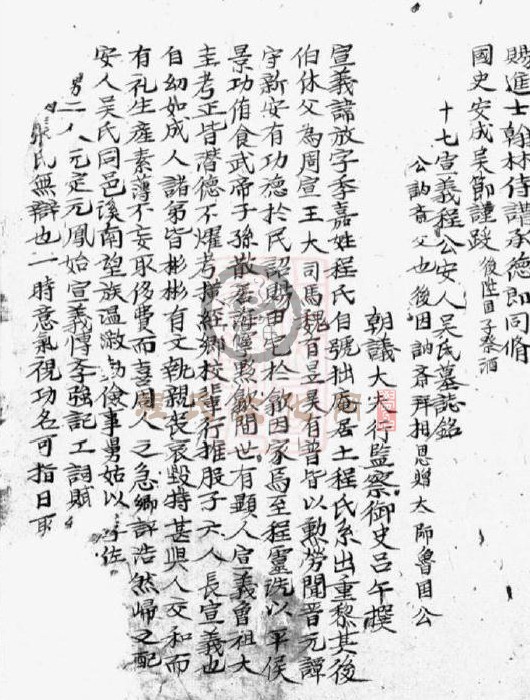 賜進士翰林侍講承德郎同脩
國史安成吳節謹跋 後陞国子祭酒
十七宣義程公安人吳氏墓誌銘
公訥斎父也後因訥斎拜相恩贈太師魯国公
朝議大夫行監察御史呂午撰
宣義諱放字季嘉姓程氏自號拙庵居士程氏系出重黎其後
伯休父為周宣王大司馬魏百昱吴有普皆以勲勞聞晋元譚
守新安有功德於民詔賜田宅於歙因家焉至程靈洗以平侯
景功侑食武帝子孫散若海黟歙間世有顯人宣義曾祖大
主考正皆潜德不燿考 經鄉校軰行推服子六人長宣義也
自幼如成人諸弟皆彬彬有文執親喪哀毀特甚與人交和而
有礼生産素薄不妄取侈費而喜周人之急鄉評浩然歸之配
安人吳氏同邑溪南望族温淑 儉事舅姑以
男二人元定元鳳始宣義博學強記工詞賦
張氏無辯也一時意氣視功名可指日取